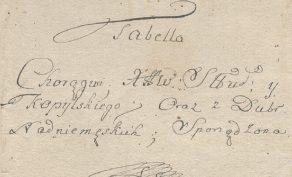 Tabella
Chorągwi XttW Słud y
Kopylskiego; Oraz z Dubr
Nadniemęskich; Sporządzona